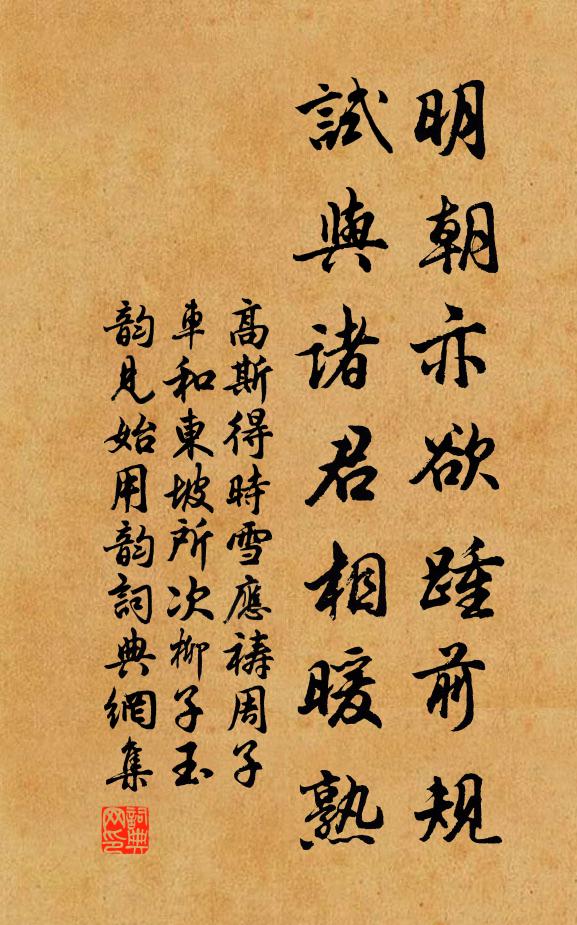 明朝亦欲踵前規
試與諸君相暖熟
高斯得時雪應禱周子
車和東坡所次柳子玉
韵見始用韵詞典網集
詞典网印